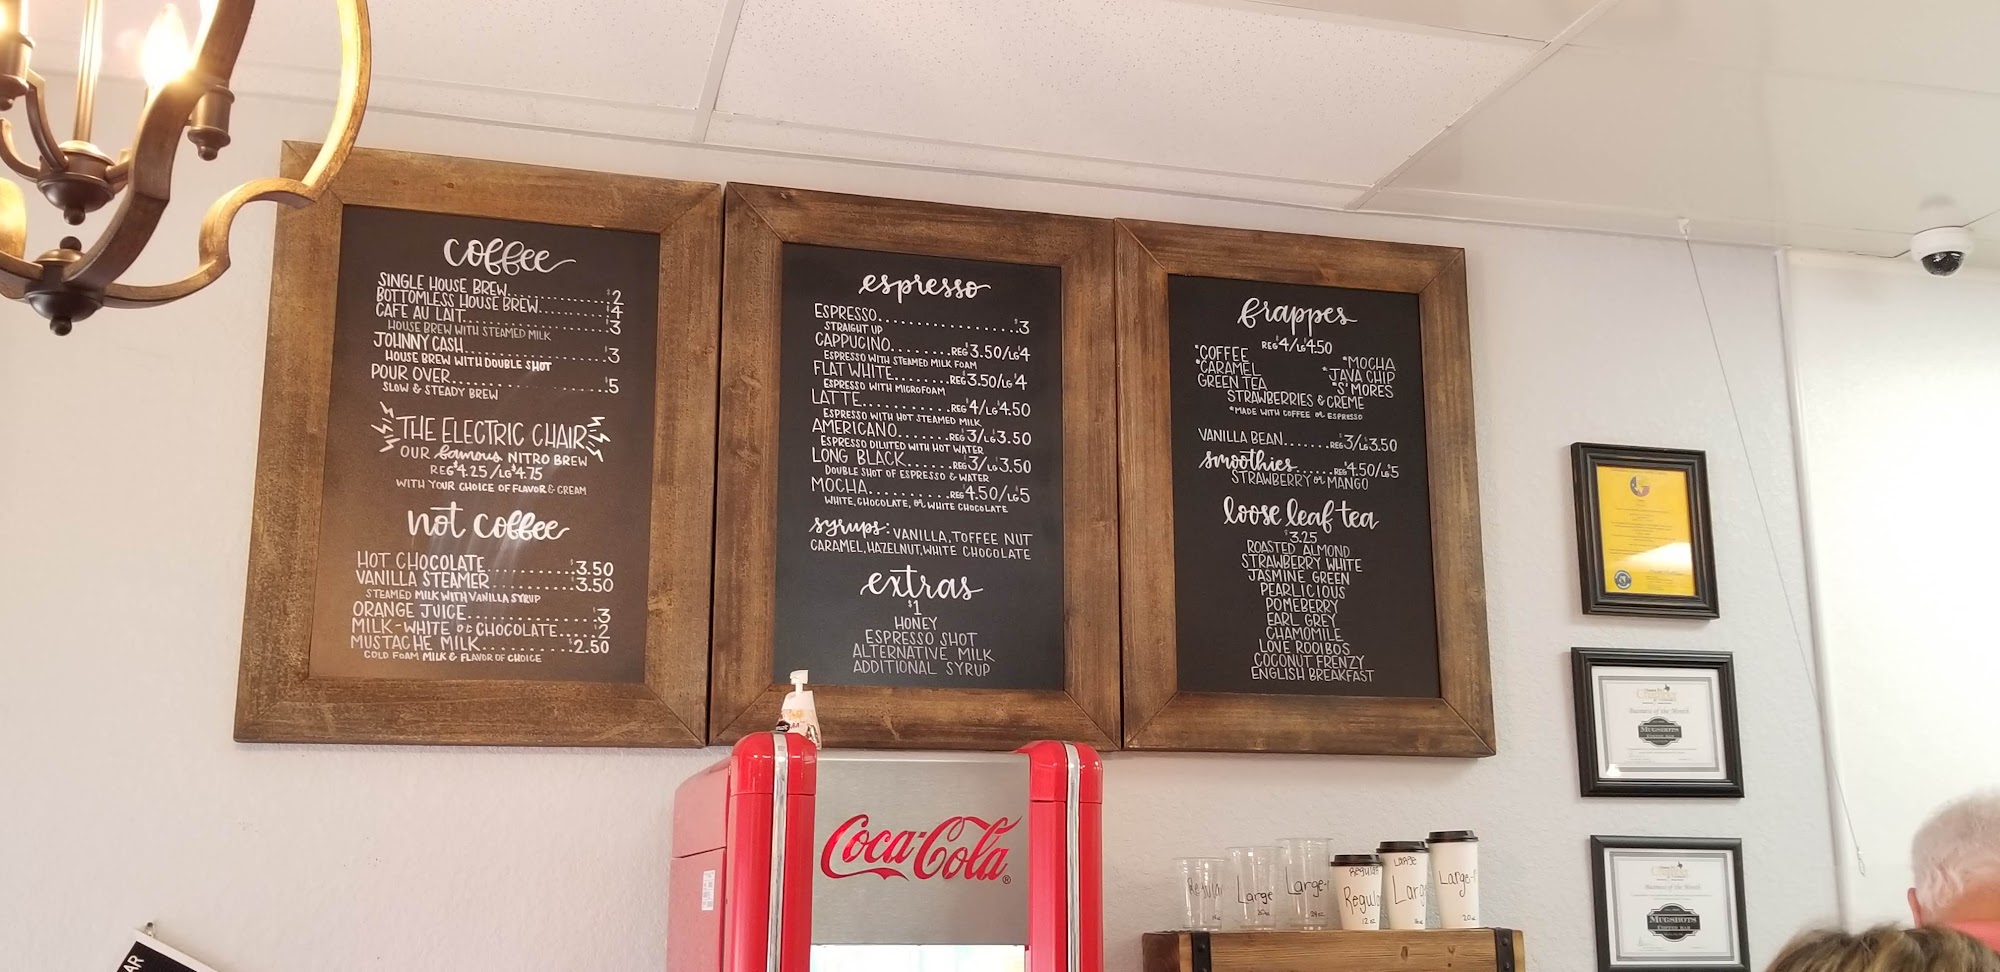 coffee
SINGLE HOUSE BREW............$2
BOTTOMLESS HOUSE BREW........$4
CAFE AU LAIT.................$3
HOUSE BREW WITH STEAMED MILK
JOHNNY CASH..................$3
HOUSE BREW WITH DOUBLE SHOT
POUR OVER....................$5
SLOW & STEADY BREW
THE ELECTRIC CHAIR
OUR famous NITRO BREW
REG $4.25/LG $4.75
WITH YOUR CHOICE OF FLAVOR & CREAM
not coffee
HOT CHOCOLATE..........$3.50
VANILLA STEAMER.........$3.50
STEAMED MILK WITH VANILLA SYRUP
ORANGE JUICE..............$3
MILK-WHITE or CHOCOLATE.....$2
MUSTACHE MILK..........$2.50
COLD FOAM MILK & FLAVOR OF CHOICE
espresso
ESPRESSO...................$3
STRAIGHT UP
CAPPUCINO........REG $3.50/LG $4
ESPRESSO WITH STEAMED MILK FOAM
FLAT WHITE.......REG $3.50/LG $4
ESPRESSO WITH MICROFOAM
LATTE............REG $4/LG $4.50
ESPRESSO WITH HOT STEAMED MILK
AMERICANO.......REG $3/LG $3.50
ESPRESSO DILUTED WITH HOT WATER
LONG BLACK......REG $3/LG $3.50
DOUBLE SHOT OF ESPRESSO & WATER
MOCHA..........REG $4.50/LG $5
WHITE, CHOCOLATE, or WHITE CHOCOLATE
syrups: VANILLA, TOFFEE NUT
CARAMEL, HAZELNUT, WHITE CHOCOLATE
extras
$1
HONEY
ESPRESSO SHOT
ALTERNATIVE MILK
ADDITIONAL SYRUP
frappes
REG $4/LG $4.50
*COFFEE *MOCHA
*CARAMEL *JAVA CHIP
GREEN TEA *S'MORES
STRAWBERRIES & CREME
*MADE WITH COFFEE or ESPRESSO
VANILLA BEAN.......REG $3/LG $3.50
smoothies......REG $4.50/LG $5
STRAWBERRY or MANGO
loose leaf tea
$3.25
ROASTED ALMOND
STRAWBERRY WHITE
JASMINE GREEN
PEARLICIOUS
POMEBERRY
EARL GREY
CHAMOMILE
LOVE ROOIBOS
COCONUT FRENZY
ENGLISH BREAKFAST
Coca-Cola®
Regular
Large
Large-
REGULAR
Regular
12 oz
LARGE
Large
16 oz
Large-
20 oz
Business of the Month
MUGSHOTS
COFFEE BAR
Business of the Month
MUGSHOTS
COFFEE BAR
AR